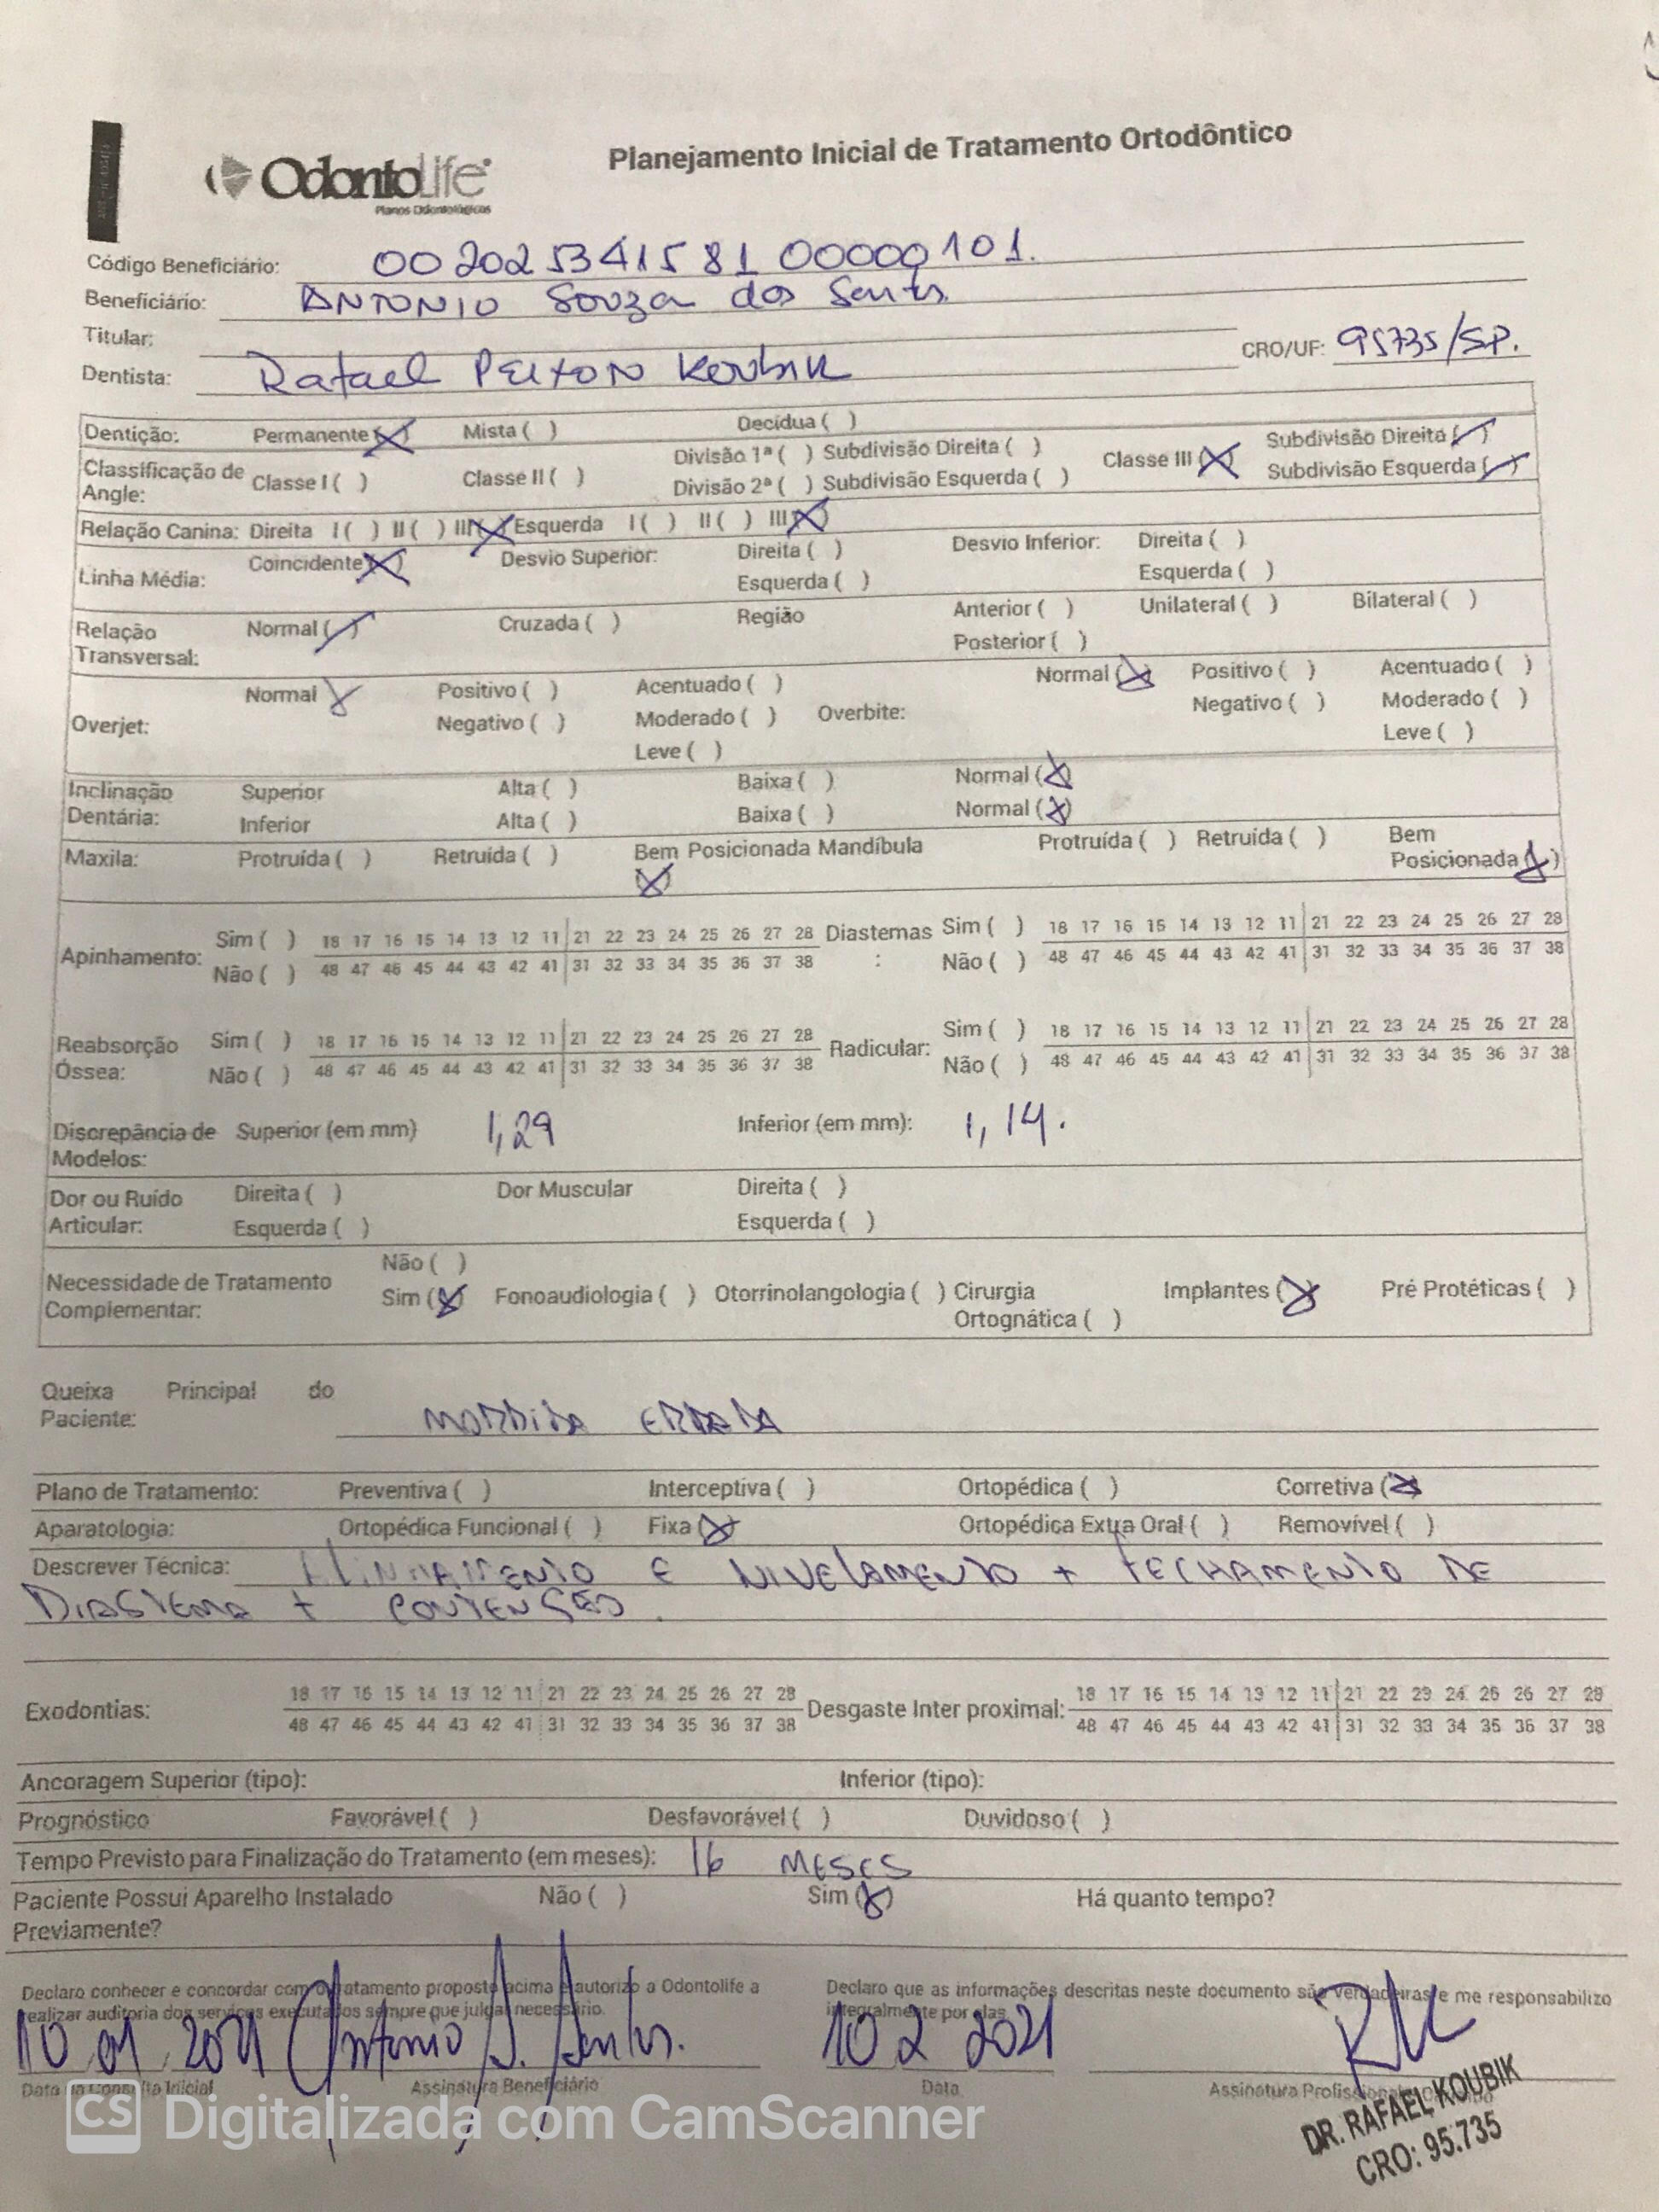 OdontoLife
Planos Odontológicos
Planejamento Inicial de Tratamento Ortodôntico
Código Beneficiário: 00202534158100000101.
Beneficiário: ANTONIO Souza dos Santos
Titular:
Dentista: Rafael Koubik CRO/UF: 95735/SP.
Dentição: Permanente (X) Mista ( ) Decídua ( )
Classificação de Angle: Classe I ( ) Classe II ( ) Divisão 1ª ( ) Subdivisão Direita ( ) Classe III (X) Subdivisão Direita (/)
Divisão 2ª ( ) Subdivisão Esquerda ( ) Subdivisão Esquerda (/)
Relação Canina: Direita I ( ) II ( ) III (X) Esquerda I ( ) II ( ) III (X)
Linha Média: Coincidente (X) Desvio Superior: Direita ( ) Desvio Inferior: Direita ( )
Esquerda ( ) Esquerda ( )
Relação Transversal: Normal (/) Cruzada ( ) Região Anterior ( ) Unilateral ( ) Bilateral ( )
Posterior ( )
Overjet: Normal X Positivo ( ) Acentuado ( ) Overbite: Normal (X) Positivo ( ) Acentuado ( )
Negativo ( ) Moderado ( ) Negativo ( ) Moderado ( )
Leve ( ) Leve ( )
Inclinação Dentária: Superior Alta ( ) Baixa ( ) Normal (X)
Inferior Alta ( ) Baixa ( ) Normal (X)
Maxila: Protruída ( ) Retruída ( ) Bem Posicionada (X) Mandíbula Protruída ( ) Retruída ( ) Bem Posicionada (X)
Apinhamento: Sim ( ) 18 17 16 15 14 13 12 11 21 22 23 24 25 26 27 28 Diastemas: Sim ( ) 18 17 16 15 14 13 12 11 21 22 23 24 25 26 27 28
Não ( ) 48 47 46 45 44 43 42 41 31 32 33 34 35 36 37 38 Não ( ) 48 47 46 45 44 43 42 41 31 32 33 34 35 36 37 38
Reabsorção Óssea: Sim ( ) 18 17 16 15 14 13 12 11 21 22 23 24 25 26 27 28 Radicular: Sim ( ) 18 17 16 15 14 13 12 11 21 22 23 24 25 26 27 28
Não ( ) 48 47 46 45 44 43 42 41 31 32 33 34 35 36 37 38 Não ( ) 48 47 46 45 44 43 42 41 31 32 33 34 35 36 37 38
Discrepância de Modelos: Superior (em mm) 1,29 Inferior (em mm): 1,14.
Dor ou Ruído Articular: Direita ( ) Dor Muscular Direita ( )
Esquerda ( ) Esquerda ( )
Necessidade de Tratamento Complementar: Não ( )
Sim (X) Fonoaudiologia ( ) Otorrinolangologia ( ) Cirurgia Ortognática ( ) Implantes (X) Pré Protéticas ( )
Queixa Principal do Paciente: MORDIDA ERRADA
Plano de Tratamento: Preventiva ( ) Interceptiva ( ) Ortopédica ( ) Corretiva (X)
Aparatologia: Ortopédica Funcional ( ) Fixa (X) Ortopédica Extra Oral ( ) Removível ( )
Descrever Técnica: ALINHAMENTO E NIVELAMENTO + FECHAMENTO DE
DIASTEMA + CONTENSÃO.
Exodontias: 18 17 16 15 14 13 12 11 21 22 23 24 25 26 27 28 Desgaste Inter proximal: 18 17 16 15 14 13 12 11 21 22 23 24 25 26 27 28
48 47 46 45 44 43 42 41 31 32 33 34 35 36 37 38 48 47 46 45 44 43 42 41 31 32 33 34 35 36 37 38
Ancoragem Superior (tipo): Inferior (tipo):
Prognóstico Favorável ( ) Desfavorável ( ) Duvidoso ( )
Tempo Previsto para Finalização do Tratamento (em meses): 16 MESES
Paciente Possui Aparelho Instalado Previamente? Não ( ) Sim (X) Há quanto tempo?
Declaro conhecer e concordar com o tratamento proposto acima e autorizo a Odontolife a
realizar auditoria dos serviços executados sempre que julgar necessário.
Declaro que as informações descritas neste documento são verdadeiras e me responsabilizo
integralmente por elas.
10 01 2021 Antonio S. Santos. 10 2 2021
Data da Consulta Inicial Assinatura Beneficiário Data Assinatura Profissional
DR. RAFAEL KOUBIK
CRO: 95.735
CS Digitalizada com CamScanner